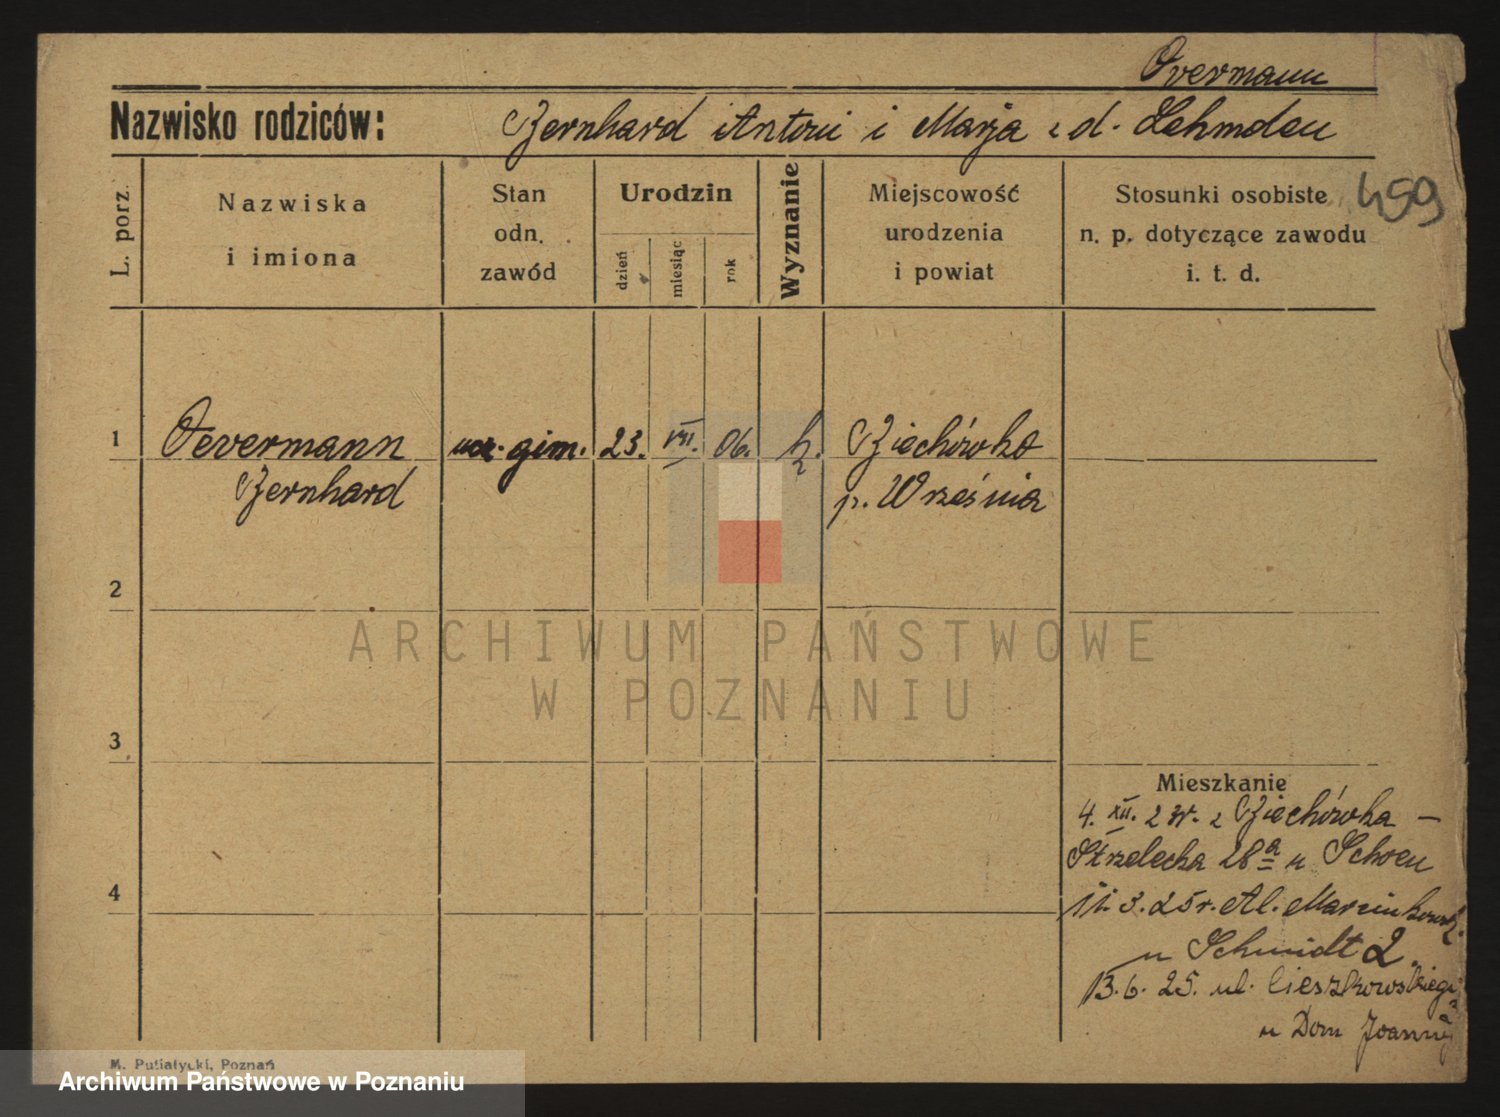 Overmann
Nazwisko rodziców: Bernhard Antoni i Marja z d. Lehmden
459
L. porz.
Nazwiska
i imiona
Stan
odn.
zawód
Urodzin
dzień
miesiąc
rok
Wyznanie
Miejscowość
urodzenia
i powiat
Stosunki osobiste
n. p. dotyczące zawodu
i. t. d.
1 Oevermann ucz. gim. 23. VII. 06. k. Biechówko
Bernhard p. Września
2
3
4
Mieszkanie
4. XII. 2 r. z Biechówka –
Strzelecka 28a u Schoen
11. 3. 25 r. Al. Marcinkowsk.
u Schmidt 2.
13. 6. 25. ul. Cieszkowskiego
u Dom Joanny
M. Putiatycki, Poznań
ARCHIWUM PAŃSTWOWE
W POZNANIU
Archiwum Państwowe w Poznaniu